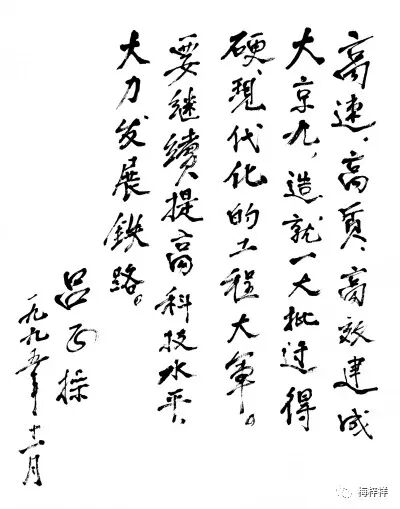 高速、高质、高效建成
大京九，造就一大批过得
硬、现代化的工程大军。
要继续提高科技水平，
大力发展铁路。
吕正操
一九九五年十一月
梅梓祥